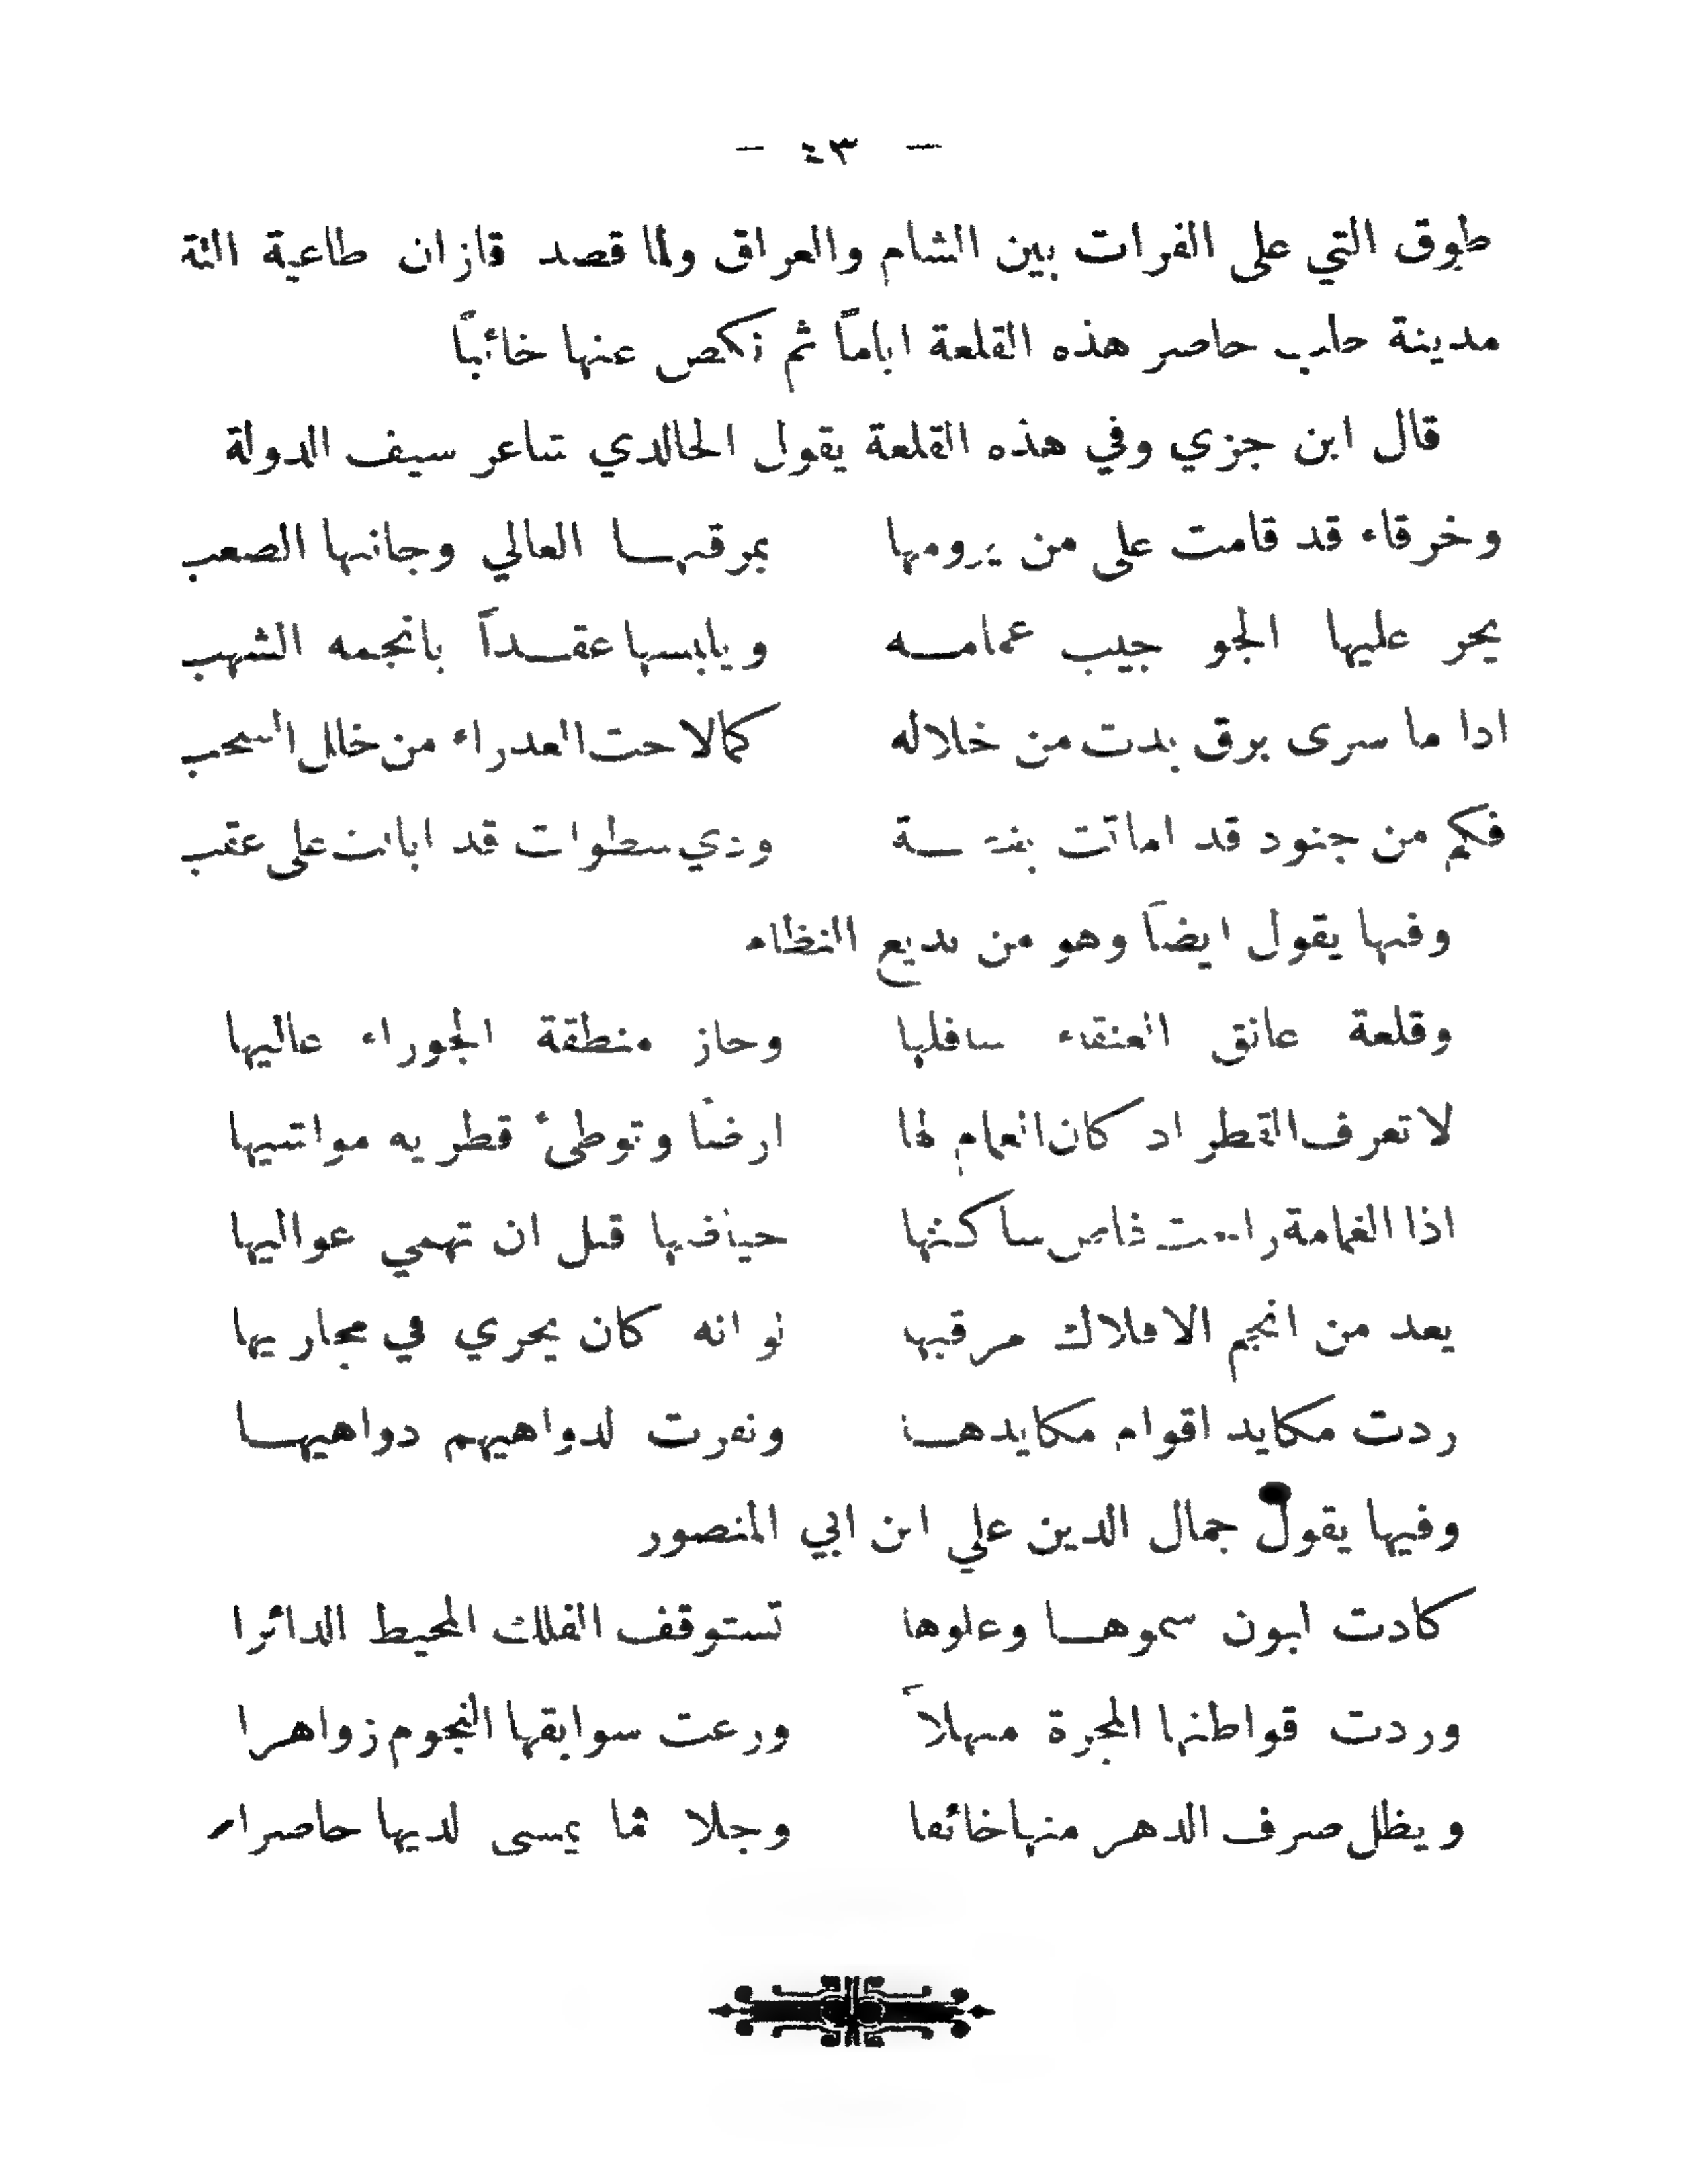 — ٤٣ —
طوق التي على الفرات بين الشام والعراق ولما قصد قازان طاغية التة
مدينة حلب حاصر هذه القلعة اياماً ثم نكص عنها خائباً
قال ابن جزي وفي هذه القلعة يقول الخالدي شاعر سيف الدولة
وخرقاء قد قامت على من يرومها بمرقبها العالي وجانبها الصعب
يجر عليها الجو جيب غمامه ويلبسها عقداً بانجمه الشهب
اذا ما سرى برق بدت من خلاله كما لاحت العذراء من خلل السحب
فكم من جنود قد اماتت بغصة وذي سطوات قد ابانت على عقب
وفيها يقول ايضاً وهو من بديع النظام
وقلعة عانق العنقاء سافلها وحاز منطقة الجوزاء عاليها
لا تعرف القطر اذ كان الغمام لها ارضاً وتوطئ قطريه مواشيها
اذا الغمامة راحت خاض ساكنها حياضها قبل ان تهمي عواليها
يعد من انجم الافلاك مرقبها لو انه كان يجري في مجاريها
ردت مكايد اقوام مكايدها ونفرت لدواهيهم دواهيها
وفيها يقول جمال الدين علي ابن ابي المنصور
كادت لبون سموها وعلوها تستوقف الفلك المحيط الدائرا
وردت قواطنها المجرة منهلاً ورعت سوابقها النجوم زواهرا
ويظل صرف الدهر منها خائفا وجلا فما يمسى لديها حاضرا